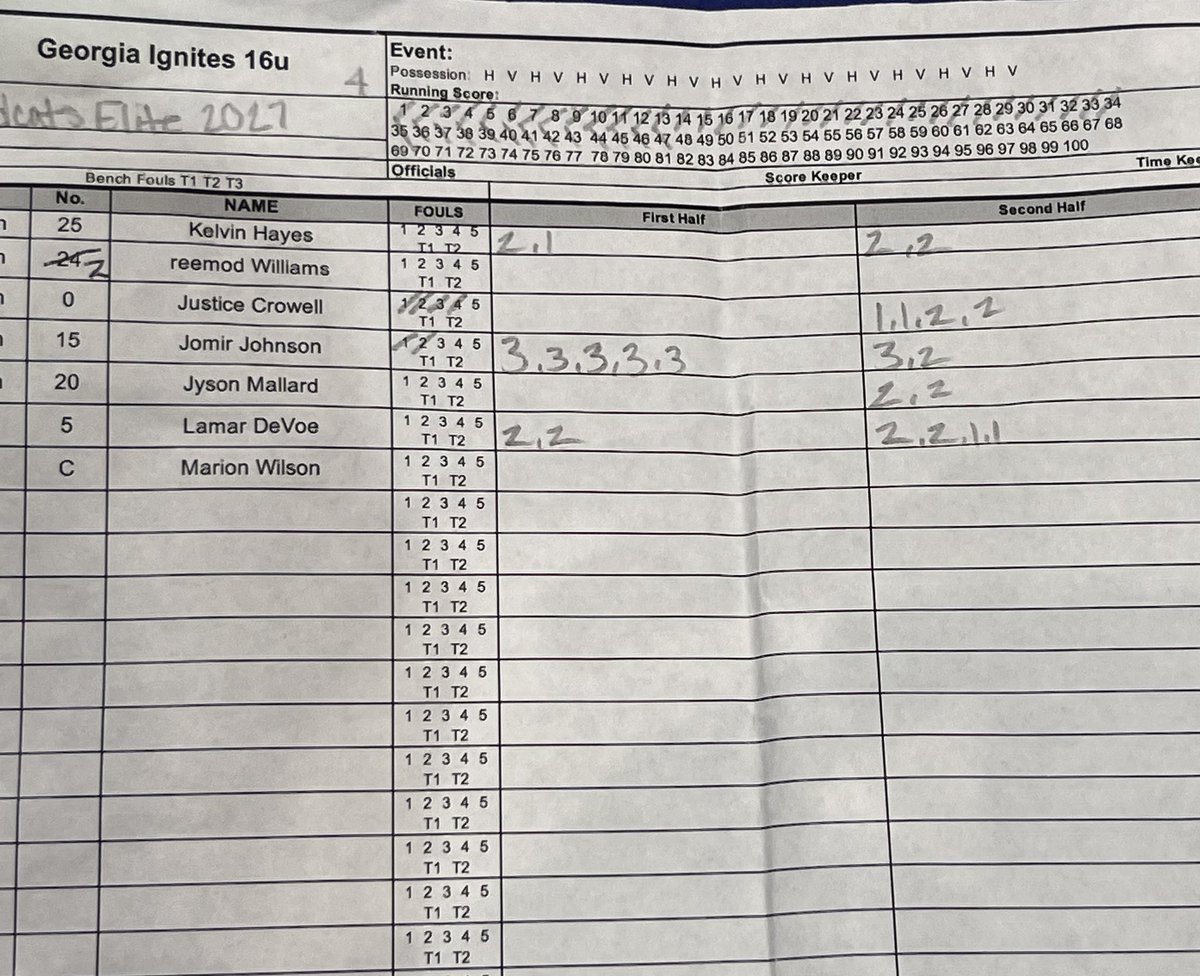 Georgia Ignites 16u
4
Event:
Possession: H V H V H V H V H V H V H V H V H V H V H V H V
Running Score:
1 2 3 4 5 6 7 8 9 10 11 12 13 14 15 16 17 18 19 20 21 22 23 24 25 26 27 28 29 30 31 32 33 34
Elite 2027
35 36 37 38 39 40 41 42 43 44 45 46 47 48 49 50 51 52 53 54 55 56 57 58 59 60 61 62 63 64 65 66 67 68
69 70 71 72 73 74 75 76 77 78 79 80 81 82 83 84 85 86 87 88 89 90 91 92 93 94 95 96 97 98 99 100
Officials Score Keeper Time
Bench Fouls T1 T2 T3
No. NAME FOULS First Half Second Half
25 Kelvin Hayes 1 2 3 4 5 2,1 2,2
T1 T2
24 2 reemod Williams 1 2 3 4 5
T1 T2
0 Justice Crowell 1 2 3 4 5 1,1,2,2
T1 T2
15 Jomir Johnson 1 2 3 4 5 3,3,3,3,3 3,2
T1 T2
20 Jyson Mallard 1 2 3 4 5 2,2
T1 T2
5 Lamar DeVoe 1 2 3 4 5 2,2 2,2,1,1
T1 T2
C Marion Wilson 1 2 3 4 5
T1 T2
1 2 3 4 5
T1 T2
1 2 3 4 5
T1 T2
1 2 3 4 5
T1 T2
1 2 3 4 5
T1 T2
1 2 3 4 5
T1 T2
1 2 3 4 5
T1 T2
1 2 3 4 5
T1 T2
1 2 3 4 5
T1 T2
1 2 3 4 5
T1 T2
1 2 3 4 5
T1 T2
1 2 3 4 5
T1 T2